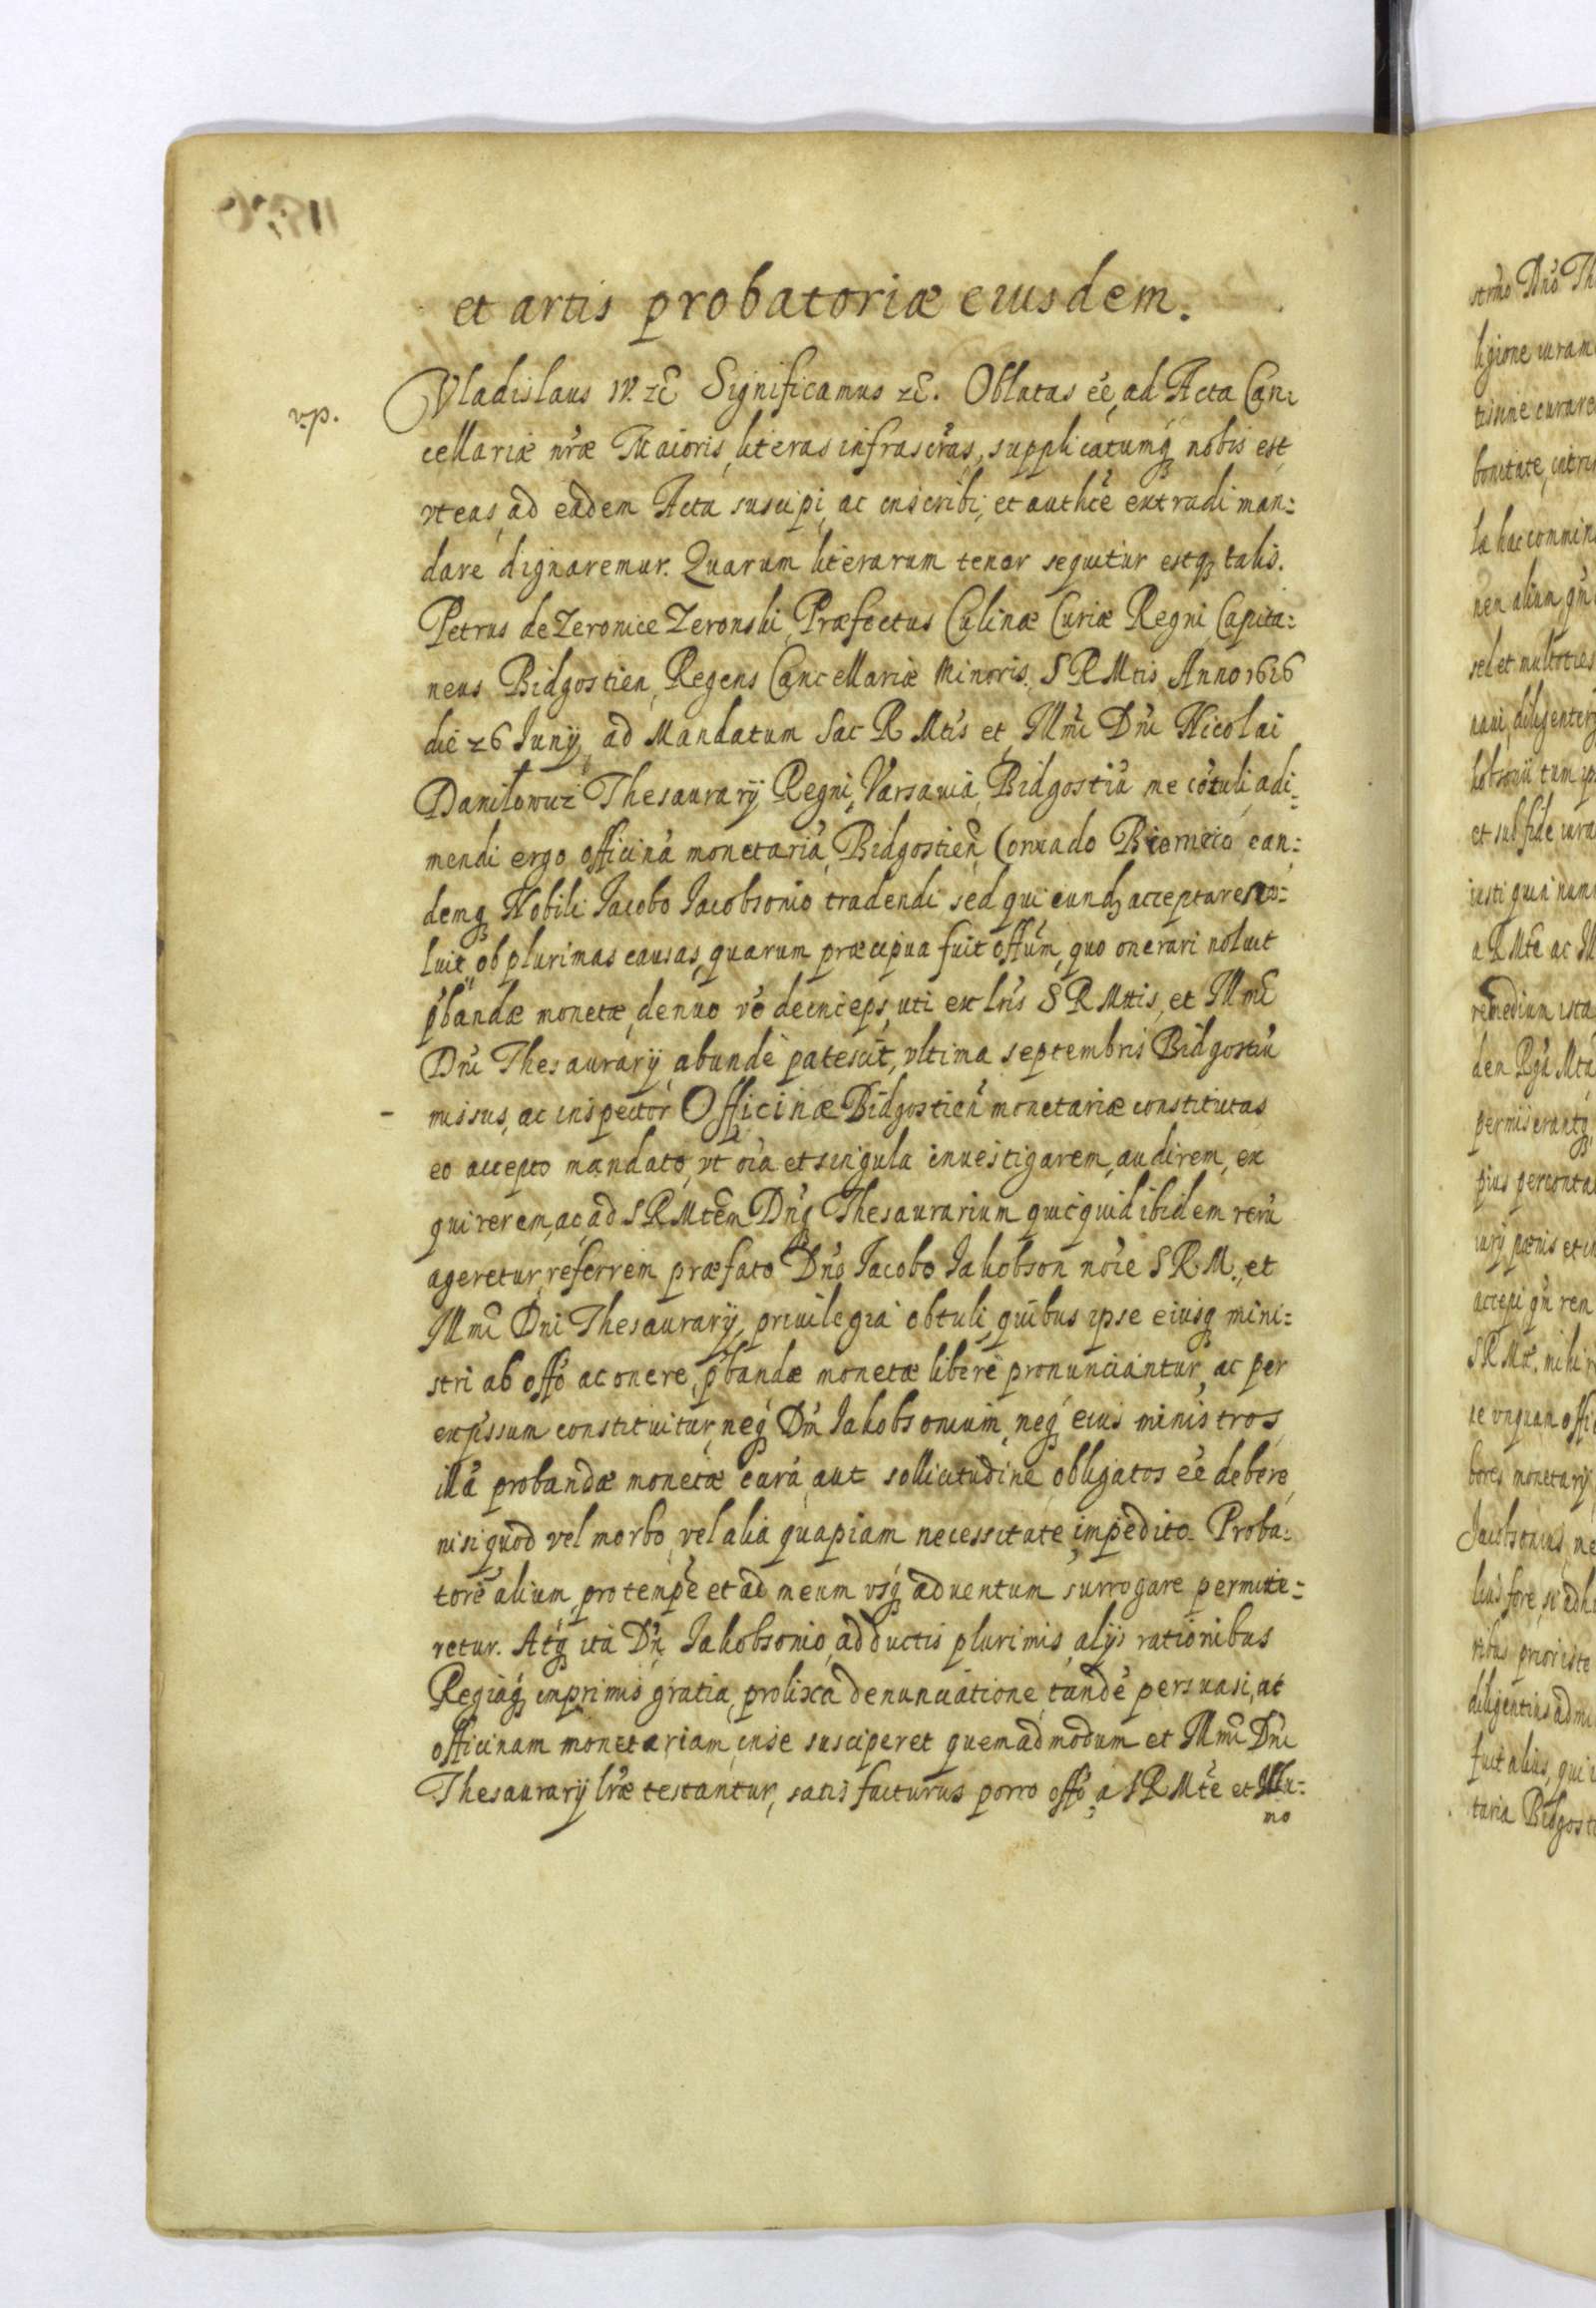 et artis probatoriæ eiusdem.
v.p.
Vladislaus IV. &c̃ Significamus &c̃. Oblatas eẽ, ad Acta Can:
cellariæ nr̃æ Maioris, literas infrascr̃as, supplicatumq; nobis est
vt eas, ad eadem Acta suscipi, ac inscribi, et auth̃ce extradi man:
dare dignaremur. Quarum literarum tenor sequitur estq; talis.
Petrus de Zeronice Zeronski, Præfectus Culinæ Curiæ Regni Capita:
neus Bidgostien, Regens Cancellariæ Minoris. S R Mtis Anno 1626
die 26 Iunij, ad Mandatum Sac R Mtis et, Illmi Dñi Nicolai
Daniłowicz Thesaurarij Regni, Varsauiã, Bidgostiã me cõtuli, adi:
mendi ergo officinã monetariã, Bidgostien̄, Conrado Biemeio ean:
demq; Nobili Iacobo Iacobsonio tradendi sed qui eund; acceptare no:
luit, ob plurimas causas, quarum præcipua fuit offũm, quo onerari noluit
p̃bandæ monetæ, denuo vẽ deinceps, uti ex lr̃is S R Mttis, et Illmĩ
Dñi Thesaurarij, abundè patescit, vltima septembris Bidgostiũ
missus, ac inspector Officinæ Bidgostien̄ monetariæ constitutas
eo accepto mandato, vt oĩa et singula inuestigarem, audirem, ex
quirerem, ac ad S R Mtẽm Dñq; Thesaurarium quicquid ibidem rerũ
ageretur, referrem præfato Dño Iacobo Iakobson noĩe S R M., et
Illmi Dñi Thesaurarij, priuilegia obtuli, quibus ipse eiusq; mini:
stri ab offõ ac onere, p̃bandæ monetæ liberè pronunciantur, ac per
exp̃ssum constituitur, neq; Dñ Iakobsonium, neq; eius ministros
illã probandæ monetæ curã, aut sollicitudine, obligatos eẽ debere,
nisi quod vel morbo, vel alia quapiam necessitate, impedito. Proba:
torẽ alium, pro tempẽ et ad meum vsq; aduentum surrogare permitte:
retur. Atq; ità Dñ Iakobsonio, adductis plurimis, alijs rationibus
Regiaq; inprimis gratia, prolixa denunciatione, tandẽ persuasi, ut
officinam monetariam, in se susciperet quemadmodum et Illmi Dñi
Thesaurarij lr̃æ testantur, satisfacturus porro offõ, a S R Mtẽ et Illu:
mo